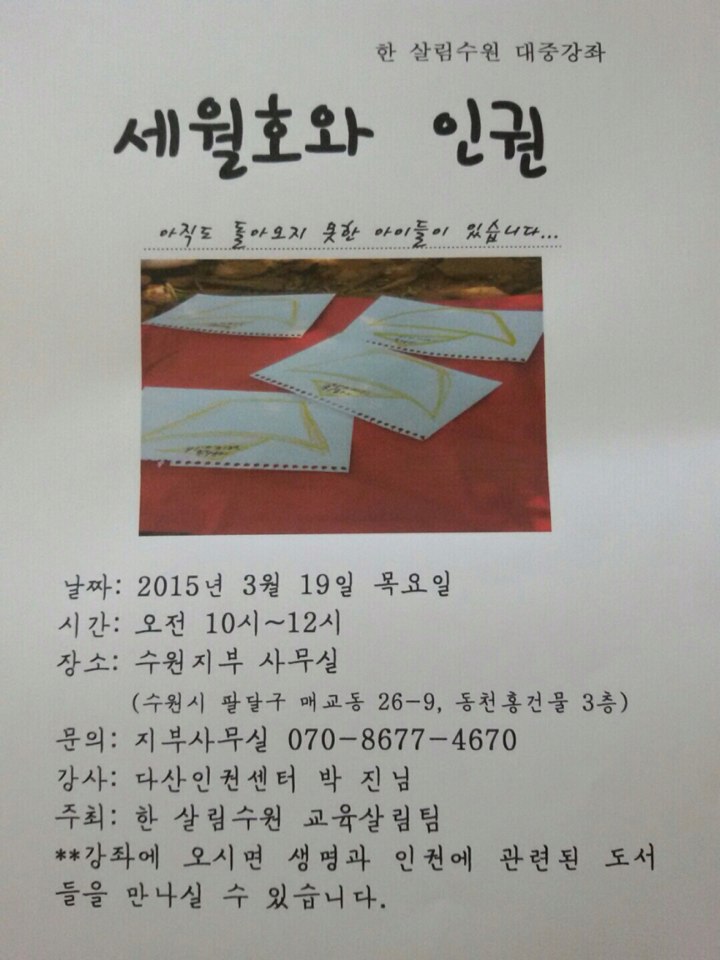 한 살림수원 대중강좌
세월호와 인권
아직도 돌아오지 못한 아이들이 있습니다...
날짜: 2015년 3월 19일 목요일
시간: 오전 10시~12시
장소: 수원지부 사무실
(수원시 팔달구 매교동 26-9, 동천홍건물 3층)
문의: 지부사무실 070-8677-4670
강사: 다산인권센터 박 진님
주최: 한 살림수원 교육살림팀
**강좌에 오시면 생명과 인권에 관련된 도서
들을 만나실 수 있습니다.